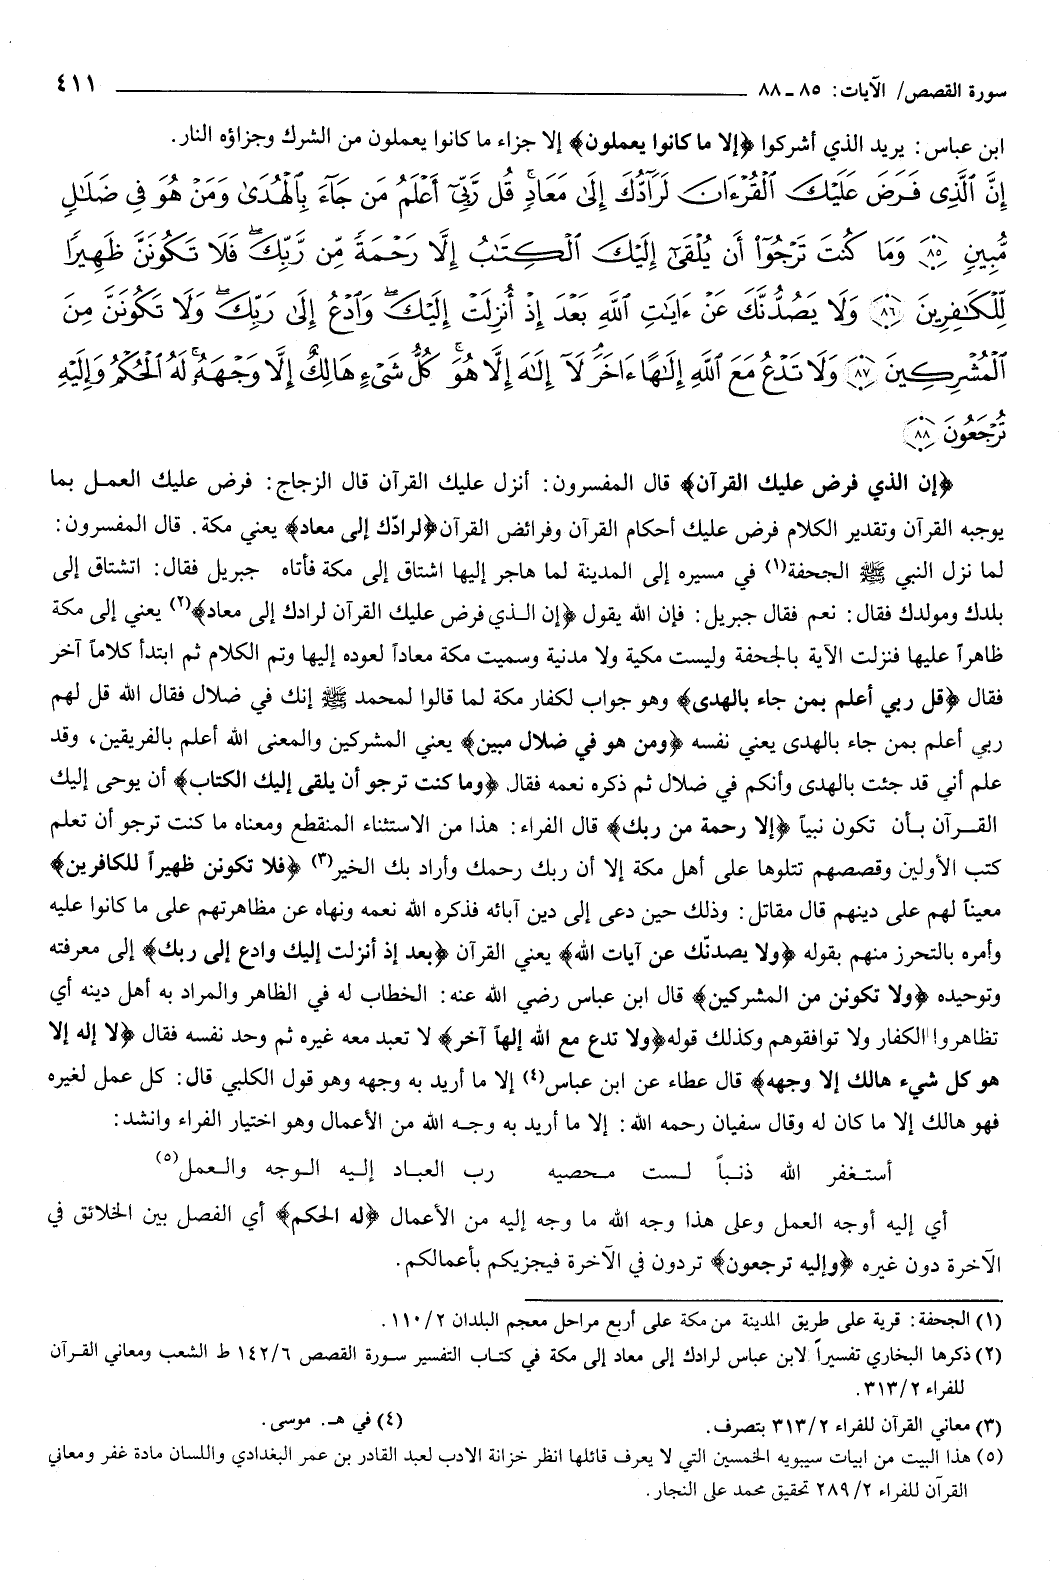 سورة القصص/ الآيات: ٨٥ ـ ٨٨ ٤١١
ابن عباس: يريد الذي أشركوا ﴿إلا ما كانوا يعملون﴾ إلا جزاء ما كانوا يعملون من الشرك وجزاؤه النار.
إِنَّ ٱلَّذِى فَرَضَ عَلَيْكَ ٱلْقُرْءَانَ لَرَآدُّكَ إِلَىٰ مَعَادٍ ۚ قُل رَّبِّىٓ أَعْلَمُ مَن جَآءَ بِٱلْهُدَىٰ وَمَنْ هُوَ فِى ضَلَٰلٍ
مُّبِينٍ ٨٥ وَمَا كُنتَ تَرْجُوٓا۟ أَن يُلْقَىٰٓ إِلَيْكَ ٱلْكِتَٰبُ إِلَّا رَحْمَةً مِّن رَّبِّكَ ۖ فَلَا تَكُونَنَّ ظَهِيرًا
لِّلْكَٰفِرِينَ ٨٦ وَلَا يَصُدُّنَّكَ عَنْ ءَايَٰتِ ٱللَّهِ بَعْدَ إِذْ أُنزِلَتْ إِلَيْكَ ۖ وَٱدْعُ إِلَىٰ رَبِّكَ ۖ وَلَا تَكُونَنَّ مِنَ
ٱلْمُشْرِكِينَ ٨٧ وَلَا تَدْعُ مَعَ ٱللَّهِ إِلَٰهًا ءَاخَرَ ۘ لَآ إِلَٰهَ إِلَّا هُوَ ۚ كُلُّ شَىْءٍ هَالِكٌ إِلَّا وَجْهَهُۥ ۚ لَهُ ٱلْحُكْمُ وَإِلَيْهِ
تُرْجَعُونَ ٨٨
﴿إن الذي فرض عليك القرآن﴾ قال المفسرون: أنزل عليك القرآن قال الزجاج: فرض عليك العمل بما
يوجبه القرآن وتقدير الكلام فرض عليك أحكام القرآن وفرائض القرآن﴿لرادّك إلى معاد﴾ يعني مكة. قال المفسرون:
لما نزل النبي ﷺ الجحفة(١) في مسيره إلى المدينة لما هاجر إليها اشتاق إلى مكة فأتاه جبريل فقال: اتشتاق إلى
بلدك ومولدك فقال: نعم فقال جبريل: فإن الله يقول ﴿إن الذي فرض عليك القرآن لرادك إلى معاد﴾(٢) يعني إلى مكة
ظاهراً عليها فنزلت الآية بالجحفة وليست مكية ولا مدنية وسميت مكة معاداً لعوده إليها وتم الكلام ثم ابتدأ كلاماً آخر
فقال ﴿قل ربي أعلم بمن جاء بالهدى﴾ وهو جواب لكفار مكة لما قالوا لمحمد ﷺ إنك في ضلال فقال الله قل لهم
ربي أعلم بمن جاء بالهدى يعني نفسه ﴿ومن هو في ضلال مبين﴾ يعني المشركين والمعنى الله أعلم بالفريقين، وقد
علم أني قد جئت بالهدى وأنكم في ضلال ثم ذكره نعمه فقال ﴿وما كنت ترجو أن يلقى إليك الكتاب﴾ أن يوحى إليك
القرآن بأن تكون نبياً ﴿إلا رحمة من ربك﴾ قال الفراء: هذا من الاستثناء المنقطع ومعناه ما كنت ترجو أن تعلم
كتب الأولين وقصصهم تتلوها على أهل مكة إلا أن ربك رحمك وأراد بك الخير(٣) ﴿فلا تكونن ظهيراً للكافرين﴾
معيناً لهم على دينهم قال مقاتل: وذلك حين دعى إلى دين آبائه فذكره الله نعمه ونهاه عن مظاهرتهم على ما كانوا عليه
وأمره بالتحرز منهم بقوله ﴿ولا يصدنّك عن آيات الله﴾ يعني القرآن ﴿بعد إذ أنزلت إليك وادع إلى ربك﴾ إلى معرفته
وتوحيده ﴿ولا تكونن من المشركين﴾ قال ابن عباس رضي الله عنه: الخطاب له في الظاهر والمراد به أهل دينه أي
تظاهروا الكفار ولا توافقوهم وكذلك قوله﴿ولا تدع مع الله إلهاً آخر﴾ لا تعبد معه غيره ثم وحد نفسه فقال ﴿لا إله إلا
هو كل شيء هالك إلا وجهه﴾ قال عطاء عن ابن عباس(٤) إلا ما أريد به وجهه وهو قول الكلبي قال: كل عمل لغيره
فهو هالك إلا ما كان له وقال سفيان رحمه الله: إلا ما أريد به وجه الله من الأعمال وهو اختيار الفراء وانشد:
أستغفر الله ذنباً لست محصيه رب العباد إليه الوجه والعمل(٥)
أي إليه أوجه العمل وعلى هذا وجه الله ما وجه إليه من الأعمال ﴿له الحكم﴾ أي الفصل بين الخلائق في
الآخرة دون غيره ﴿وإليه ترجعون﴾ تردون في الآخرة فيجزيكم بأعمالكم.
(١) الجحفة: قرية على طريق المدينة من مكة على أربع مراحل معجم البلدان ١١٠/٢.
(٢) ذكرها البخاري تفسيراً لابن عباس لرادك إلى معاد إلى مكة في كتاب التفسير سورة القصص ١٤٢/٦ ط الشعب ومعاني القرآن
للفراء ٣١٣/٢.
(٣) معاني القرآن للفراء ٣١٣/٢ بتصرف. (٤) في هـ. موسى.
(٥) هذا البيت من ابيات سيبويه الخمسين التي لا يعرف قائلها انظر خزانة الادب لعبد القادر بن عمر البغدادي واللسان مادة غفر ومعاني
القرآن للفراء ٢٨٩/٢ تحقيق محمد علي النجار.